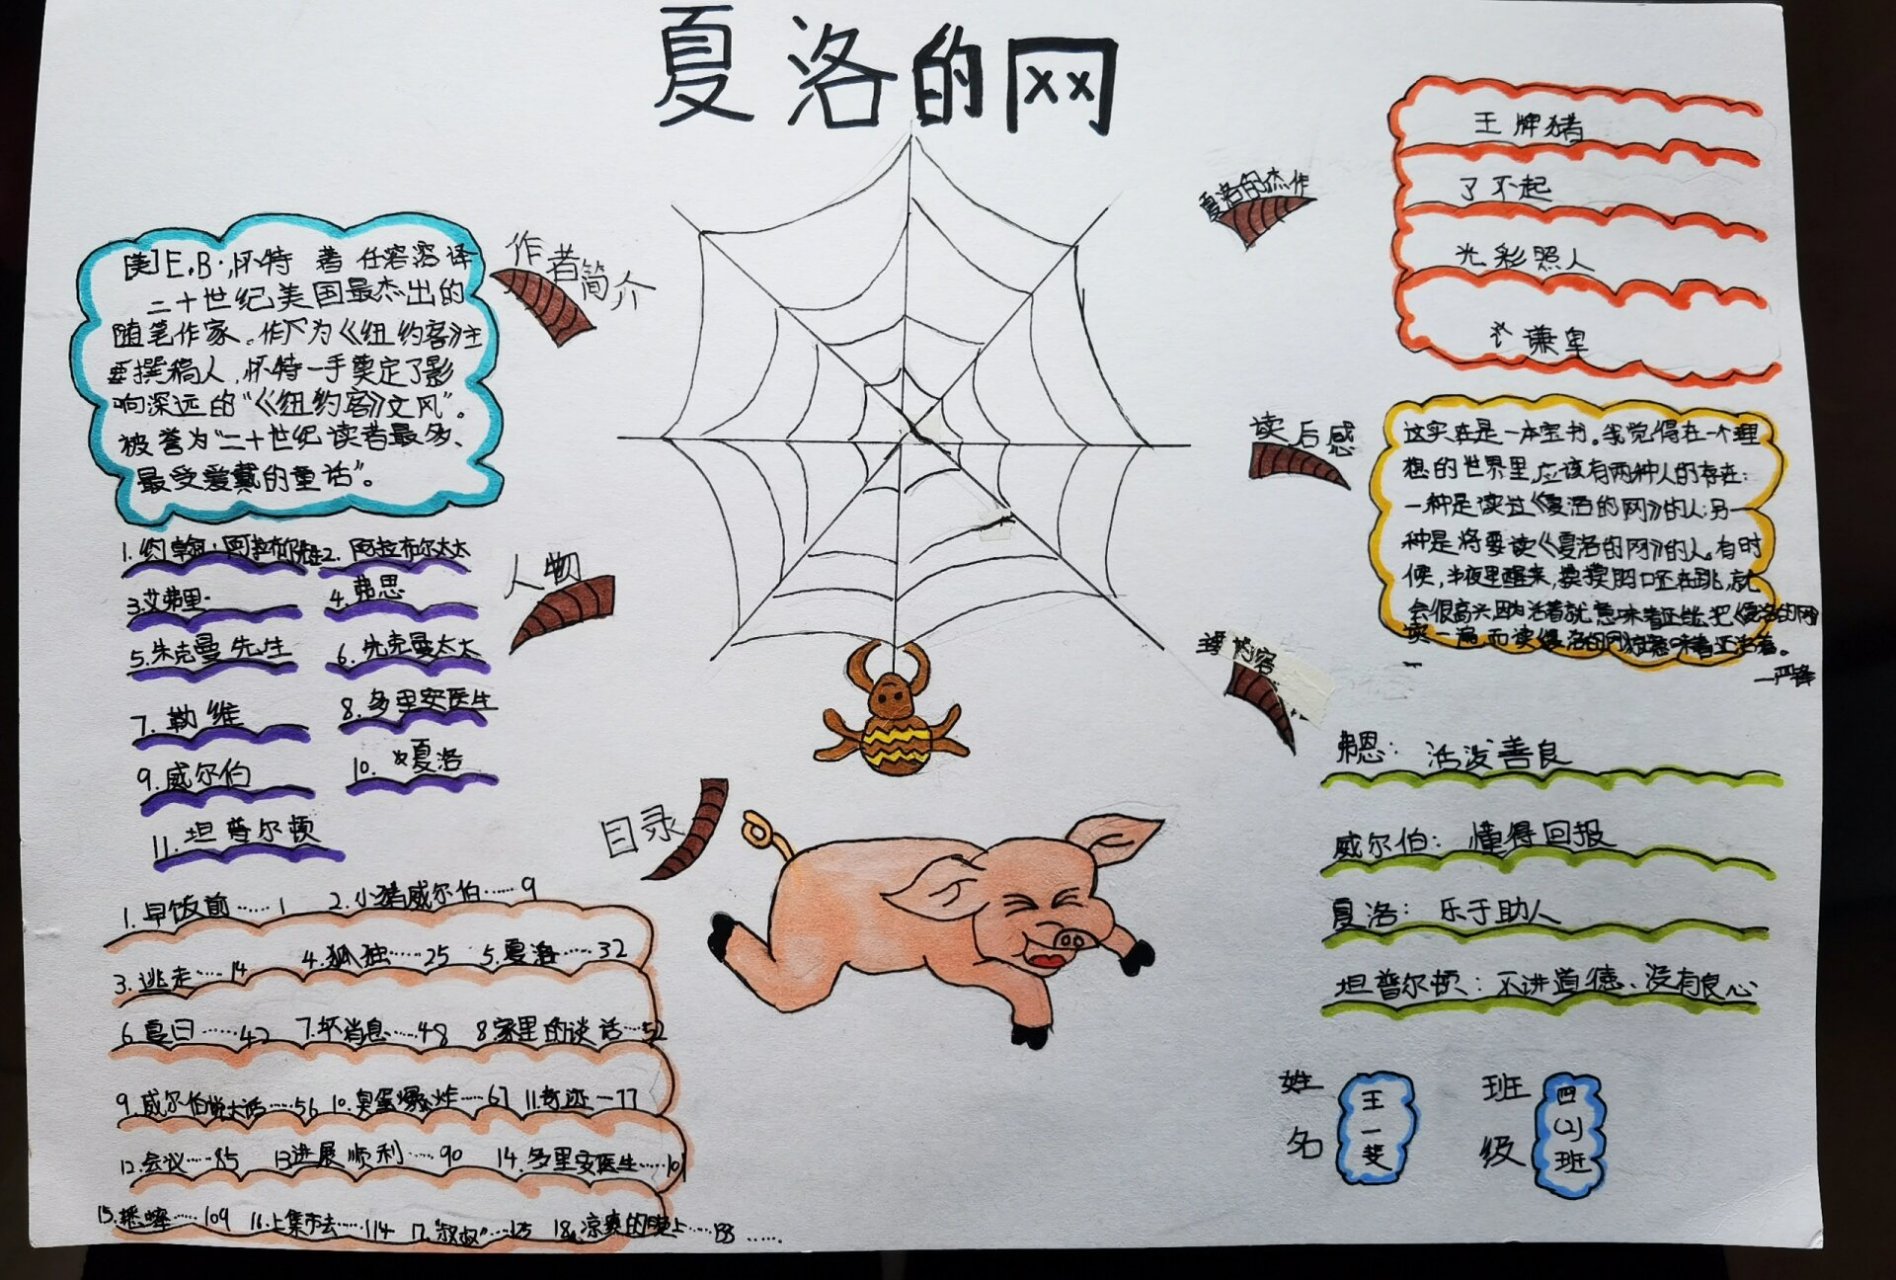 夏洛的网
作者简介
[美]E.B.怀特 著 任容溶译
二十世纪美国最杰出的
随笔作家。作为《纽约客》主
要撰稿人,怀特一手奠定了影
响深远的"《纽约客》文风"。
被誉为"二十世纪读者最多、
最受爱戴的童话"。
人物
1.约翰·阿拉布尔先生 2.阿拉布尔太太
3.艾弗里· 4.弗恩
5.朱克曼先生 6.朱克曼太太
7.勒维 8.多里安医生
9.威尔伯 10.夏洛
11.坦普尔顿
目录
1.早饭前……1 2.小猪威尔伯……9
3.逃走……14 4.孤独……25 5.夏洛……32
6.夏日……42 7.坏消息……48 8.家里的谈话…52
9.威尔伯说大话……56 10.臭蛋爆炸……67 11.奇迹—77
12.会议……85 13进展顺利……90 14.多里安医生……101
15.蟋蟀……109 16.上集市去……114 17."叔叔"…125 18.凉爽的晚上……133 ……
夏洛的杰作
王牌猪
了不起
光彩照人
谦卑
读后感
这实在是一本宝书。我觉得在一个理
想的世界里,应该有两种人的存在:
一种是读过《夏洛的网》的人;另一
种是将要读《夏洛的网》的人。有时
候,半夜里醒来,摸摸胸口还在跳,就
会很高兴,因为活着就意味着还能把《夏洛的网》
读一遍,而读《夏洛的网》就意味着还活着。
—严锋
主要内容
弗恩: 活泼善良
威尔伯: 懂得回报
夏洛: 乐于助人
坦普尔顿: 不讲道德、没有良心
姓名 王一斐
班级 四(2)班